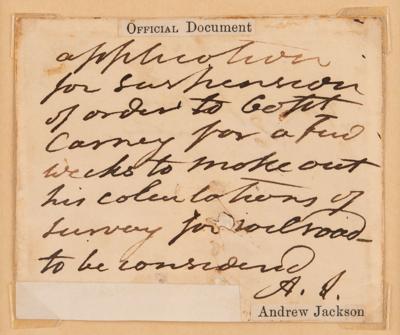 OFFICIAL DOCUMENT
application
for suspension
of order to Capt
Carney for a few
weeks to make out
his calculations of
survey for railroad
to be considered
A. J.
Andrew Jackson